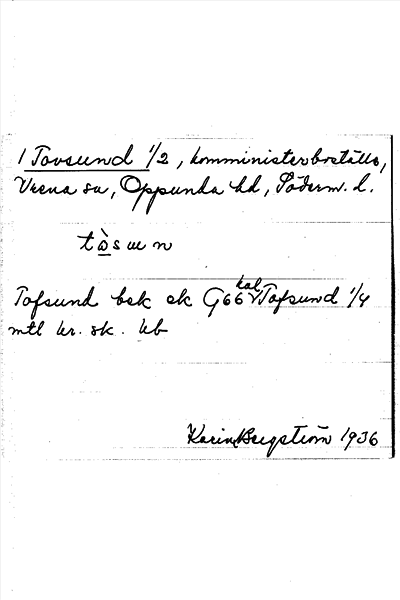 1 Tovsund 1/2, komministerboställe,
Vrena sn, Oppunda hd, Söderm. l.
tòsun
Tofsund bsk sk G66 kal V Tofsund 1/4
mtl kr. sk. kb
Karin Bergström 1936